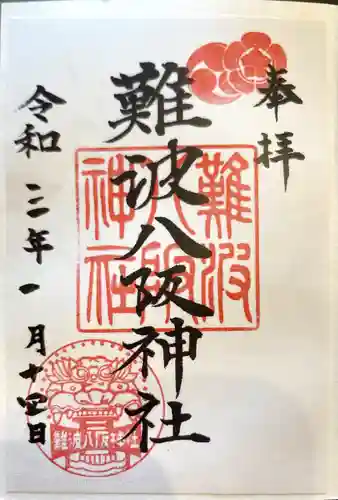 奉拝
難波八阪神社
令和三年一月十四日
難波八阪神社
難波八阪神社